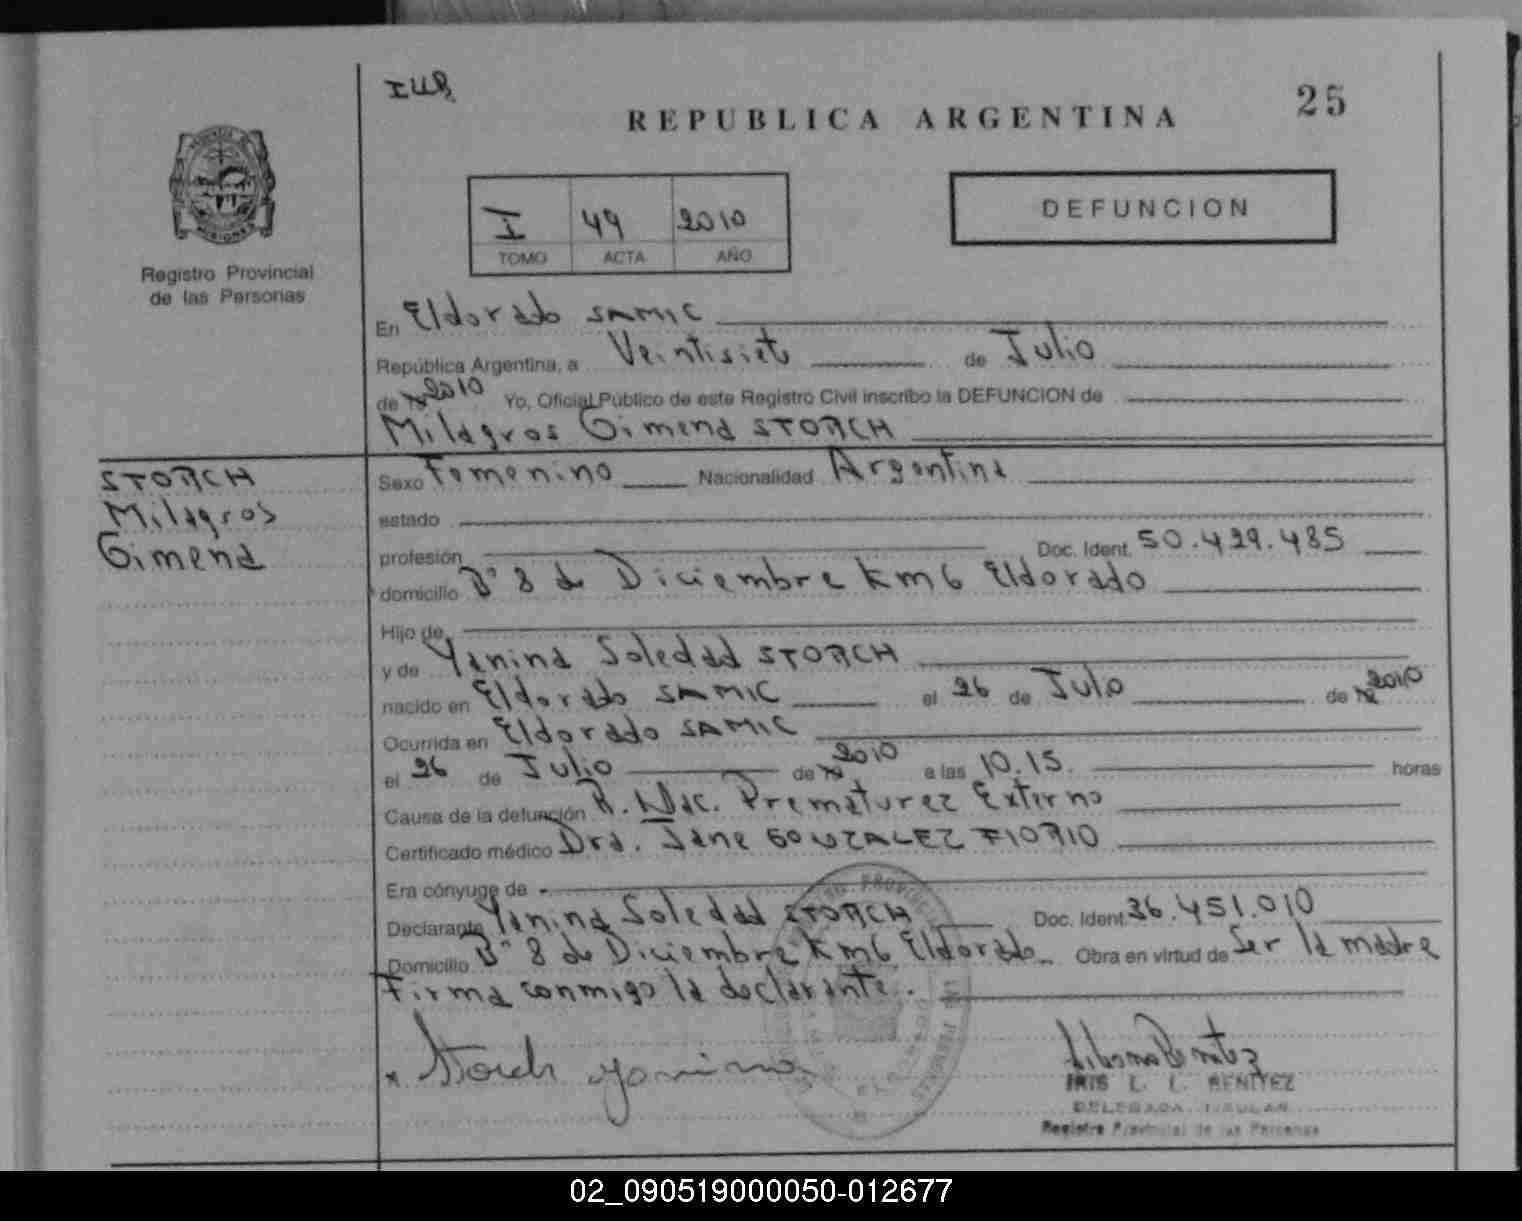 25
REPUBLICA ARGENTINA
DEFUNCION
I 49 2010
TOMO ACTA AÑO
MISIONES
Registro Provincial
de las Personas
En Eldorado SAMIC
República Argentina, a Veintisiete de Julio
de 2010 Yo, Oficial Público de este Registro Civil inscribo la DEFUNCION de
Milagros Gimena STORCH
STORCH
Milagros
Gimena
Sexo Femenino Nacionalidad Argentina
estado
profesión Doc. Ident. 50.429.485
domicilio Bº 8 de Diciembre Km 6 Eldorado
Hijo de
y de Yanina Soledad STORCH
nacido en Eldorado SAMIC el 26 de Julo de 2010
Ocurrida en Eldorado SAMIC
el 26 de Julio de 2010 a las 10.15. horas
Causa de la defunción R. Nac. Prematurez Externa
Certificado médico Dra. Jane GONZALEZ FIORIO
Era cónyuge de
Declarante Yanina Soledad STORCH Doc. Ident. 36.451.010
Domicilio Bº 8 de Diciembre Km 6 Eldorado Obra en virtud de Ser la madre
Firma conmigo la declarante.
x Storch Yanina
IRIS L. L. BENITEZ
DELEGADA TITULAR
Registro Provincial de las Personas
02_090519000050-012677